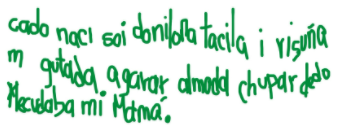 cado naci soi donilona tacila i risuña
m gutada agarar almoda chupar dedo
Mecudaba mi Mamá.